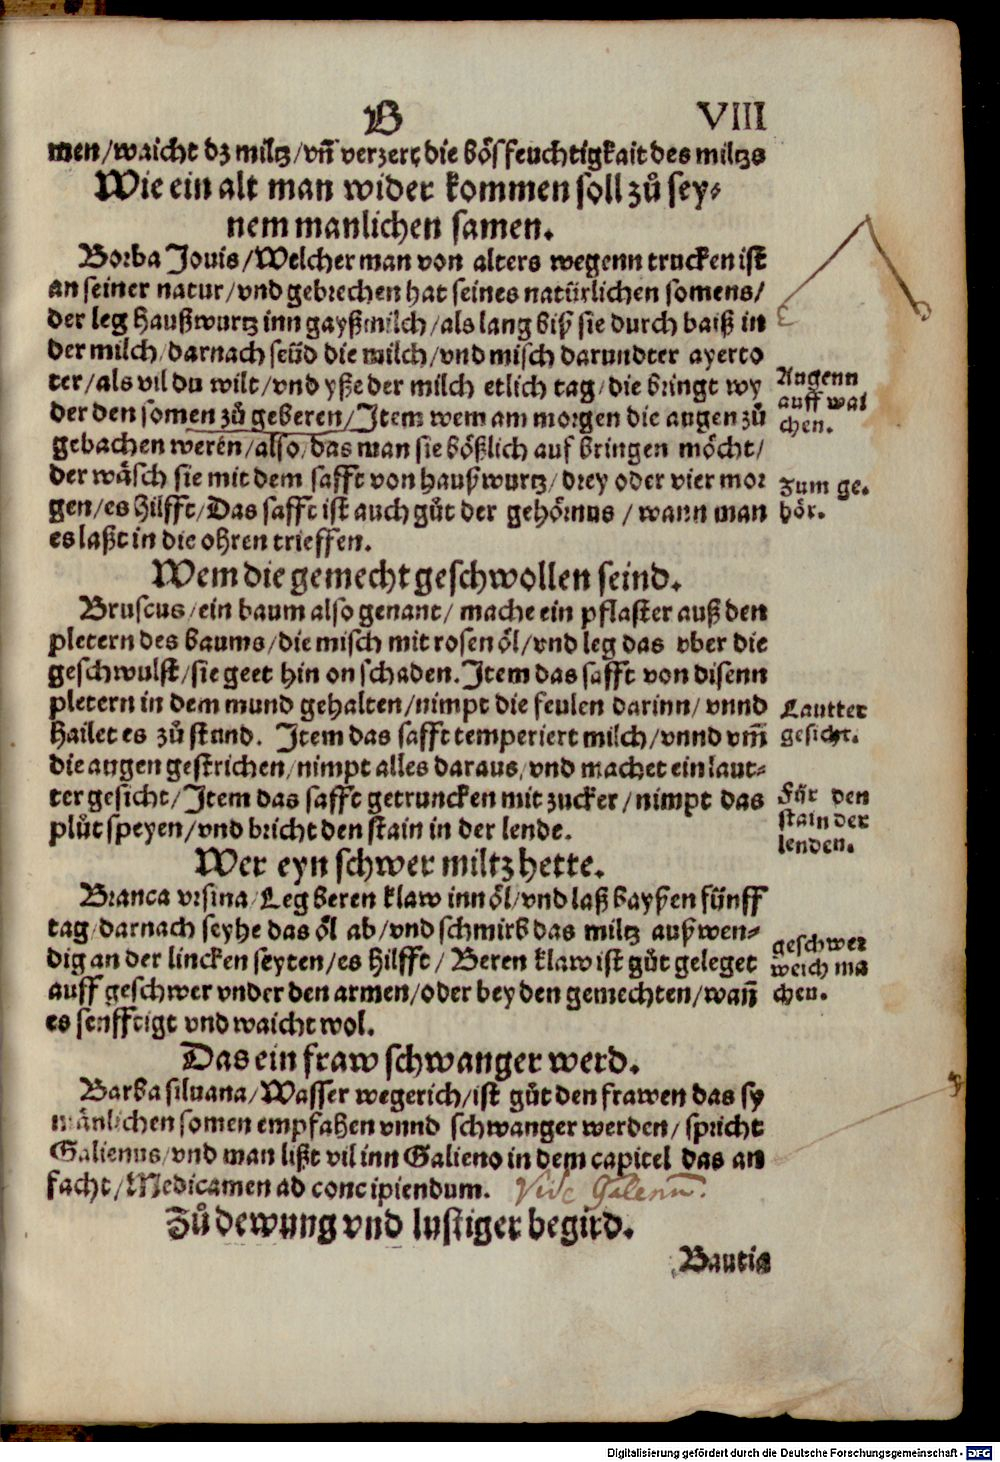 B
VIII
men/waicht dz miltz/vñ verzert die bösfeuchtigkait des miltzs
Wie ein alt man wider kommen soll zů sey⸗
nem manlichen samen.
Borba Jouis/Welcher man von alters wegenn trucken ist
an seiner natur/vnd gebrechen hat seines natürlichen somens/
der leg haußwurtz inn gayßmilch/als lang biß sie durch baiß in
der milch/darnach seüd die milch/vnd misch darundter ayerto
ter/als vil du wilt/vnd yße der milch etlich tag/die bringt wy
der den somen zů geberen/Item wem am morgen die augen zů
gebachen weren/also/das man sie bößlich auf bringen möcht/
der wäsch sie mit dem safft von haußwurtz/drey oder vier mor
gen/es hilfft/Das safft ist auch gůt der gehörnus/wann man
es laßt in die ohren trieffen.
Augenn
auff wal
chen.
zum ge.
hör.
Wem die gemecht geschwollen seind.
Bruscus/ein baum also genant/mache ein pflaster auß den
pletern des baums/die misch mit rosen öl/vnd leg das vber die
geschwulst/sie geet hin on schaden.Item das safft von disenn
pletern in dem mund gehalten/nimpt die feulen darinn/vnnd
hailet es zů stund. Item das safft temperiert milch/vnnd vm̃
die augen gestrichen/nimpt alles daraus/vnd machet ein laut⸗
ter gesicht/Item das safft getruncken mit zucker/nimpt das
plůt speyen/vnd bricht den stain in der lende.
Lautter
gesicht.
Für den
stain der
lenden.
Wer eyn schwer miltz hette.
Branca vrsina/Leg beren klaw inn öl/vnd laß bayßen fünff
tag/darnach seyhe das öl ab/vnd schmirb das miltz außwen⸗
dig an der lincken seyten/es hilfft/Beren klaw ist gůt geleget
auff geschwer vnder den armen/oder bey den gemechten/wañ
es senfftigt vnd waicht wol.
geschwer
weich ma
chen.
Das ein fraw schwanger werd.
Barba siluana/Wasser wegerich/ist gůt den frawen das sy
mänlichen somen empfahen vnnd schwanger werden/spricht
Galienus/vnd man lißt vil inn Galieno in dem capitel das an
facht/Medicamen ad concipiendum. Vide Galenũ.
Zů dewung vnd lustiger begird.
Bautia
Digitalisierung gefördert durch die Deutsche Forschungsgemeinschaft - DFG